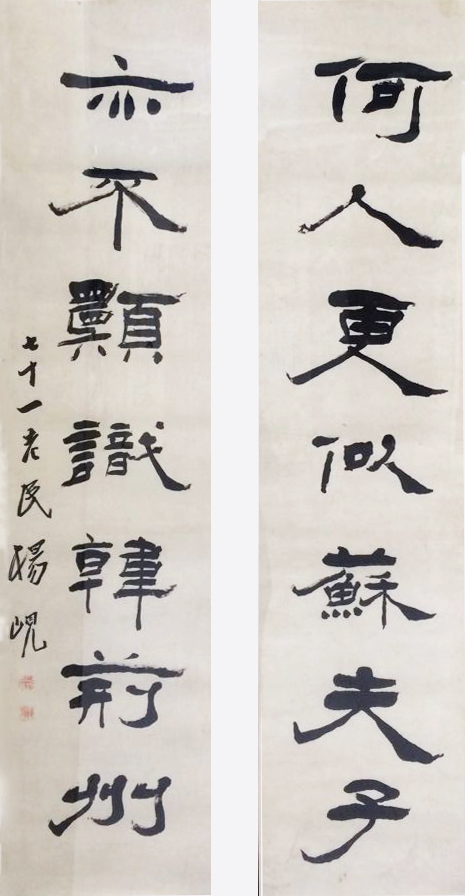 何人更似蘇夫子
亦不願識韓荊州
七十一老民楊峴